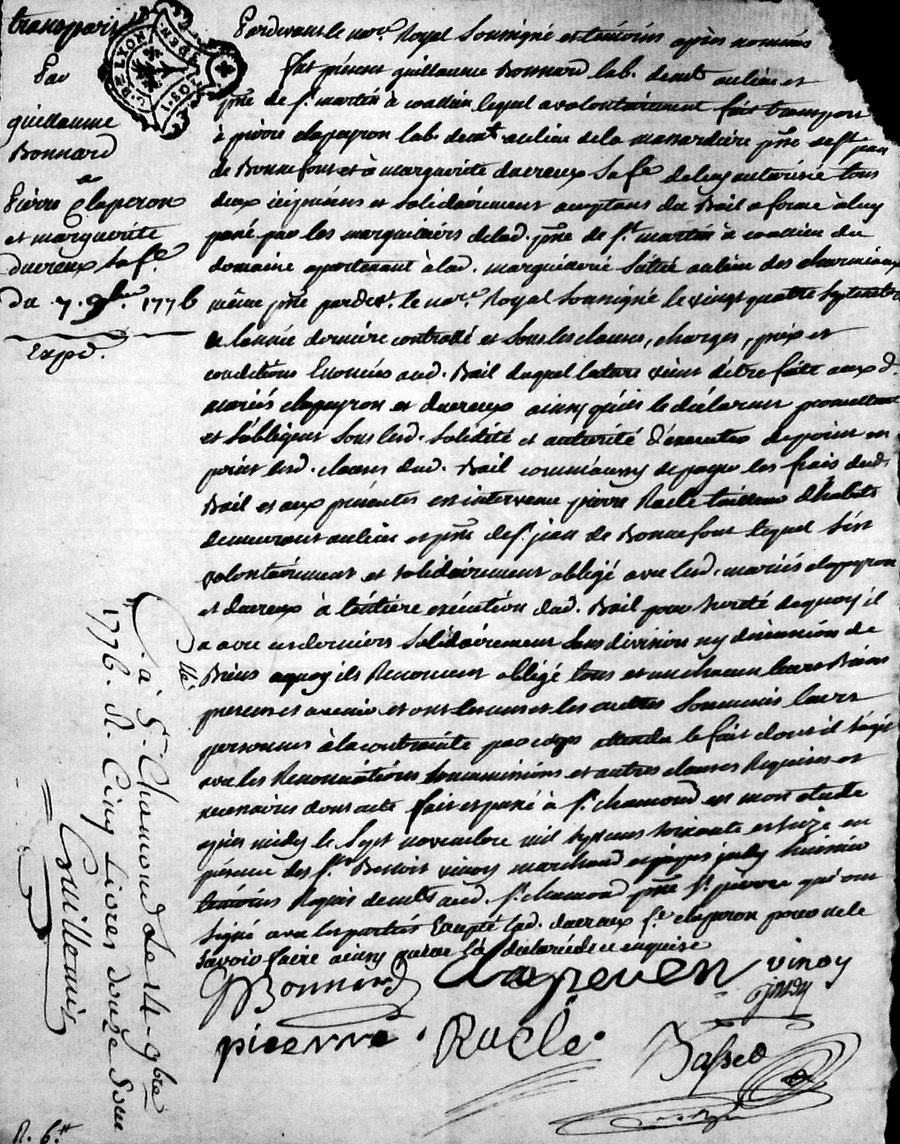 transport
Par
guillaume
Bonnard
a
Pierre Claperon
et marguerite
ducreux sa fe.
du 7. 9bre 1776
Expd.
G. DE LYON
Pardevant le nore. Royal Soussigné et temoins après nommés
fut présent guillaume Bonnard lab. demt. au lieu et
psse de St. martin à coallieu lequel a volontairement fait transport
à pierre clapeyron lab. demt. au lieu de la massardière psse de St. jean
de Bonnefont et à marguerite ducreux Sa fe. de luy autorisée tous
deux icy présens et solidairement acceptans du Bail a ferme à luy
passé par les marguilliers de lad. psse de St. martin à coallieu du
domaine apartenant à lad. marguillerie Situé au lieu des charmeaux
même psse pardvt. le nore. Royal Soussigné le vingt quatre Septembre
de l'année dernière controllé et sous les clauses, charges, prix et
conditions Enoncées aud. Bail duquel lecture vient d'etre faite aux d.
mariés clapeyron et ducreux ainsy qu'ils le déclarent promettant
et s'obligent sous lesd. solidité et autorité d'executer de point en
point lesd. clauses dud. Bail comme aussy de payer les frais dud.
Bail et aux présentes est intervenu pierre Raclé tailleur d'habits
demeurant au lieu et psse de St. jean de Bonnefont lequel s'est
volontairement et solidairement obligé avec lesd. mariés clapeyron
et ducreux à l'entière exécution dud. Bail pour sureté de quoy il
a avec ces derniers solidairement sans division ny discussion de
Biens a quoy ils Renoncent obligé tous et un chacun leurs Biens
presens et avenir et ont les uns et les autres Soumis leurs
personnes à la contrainte par corps attendu le fait dont il s'agit
avec les Renonciations soumissions et autres clauses Requises et
necessaires dont acte fait et passé à St. chamond en mon etude
après midy le Sept novembre mil sept cens soixante et seize en
présence des Srs. Benoit vinoy marchand et jaques judy huissier
temoins Requis demts. aud. St. chamond psse St. pierre qui ont
signé avec les parties Excepté lad. ducreux fe. claperon pour ne le
savoir faire ainsy qu'elle l'a déclaré de ce enquise
GBonnard Clapeyen vinoy
judy
pierre Raclé Bassed
Cllé à St. Chamond Le 14 9bre
1776. R. Cinq livres douze Sous
Guillemin
R. 6.tt